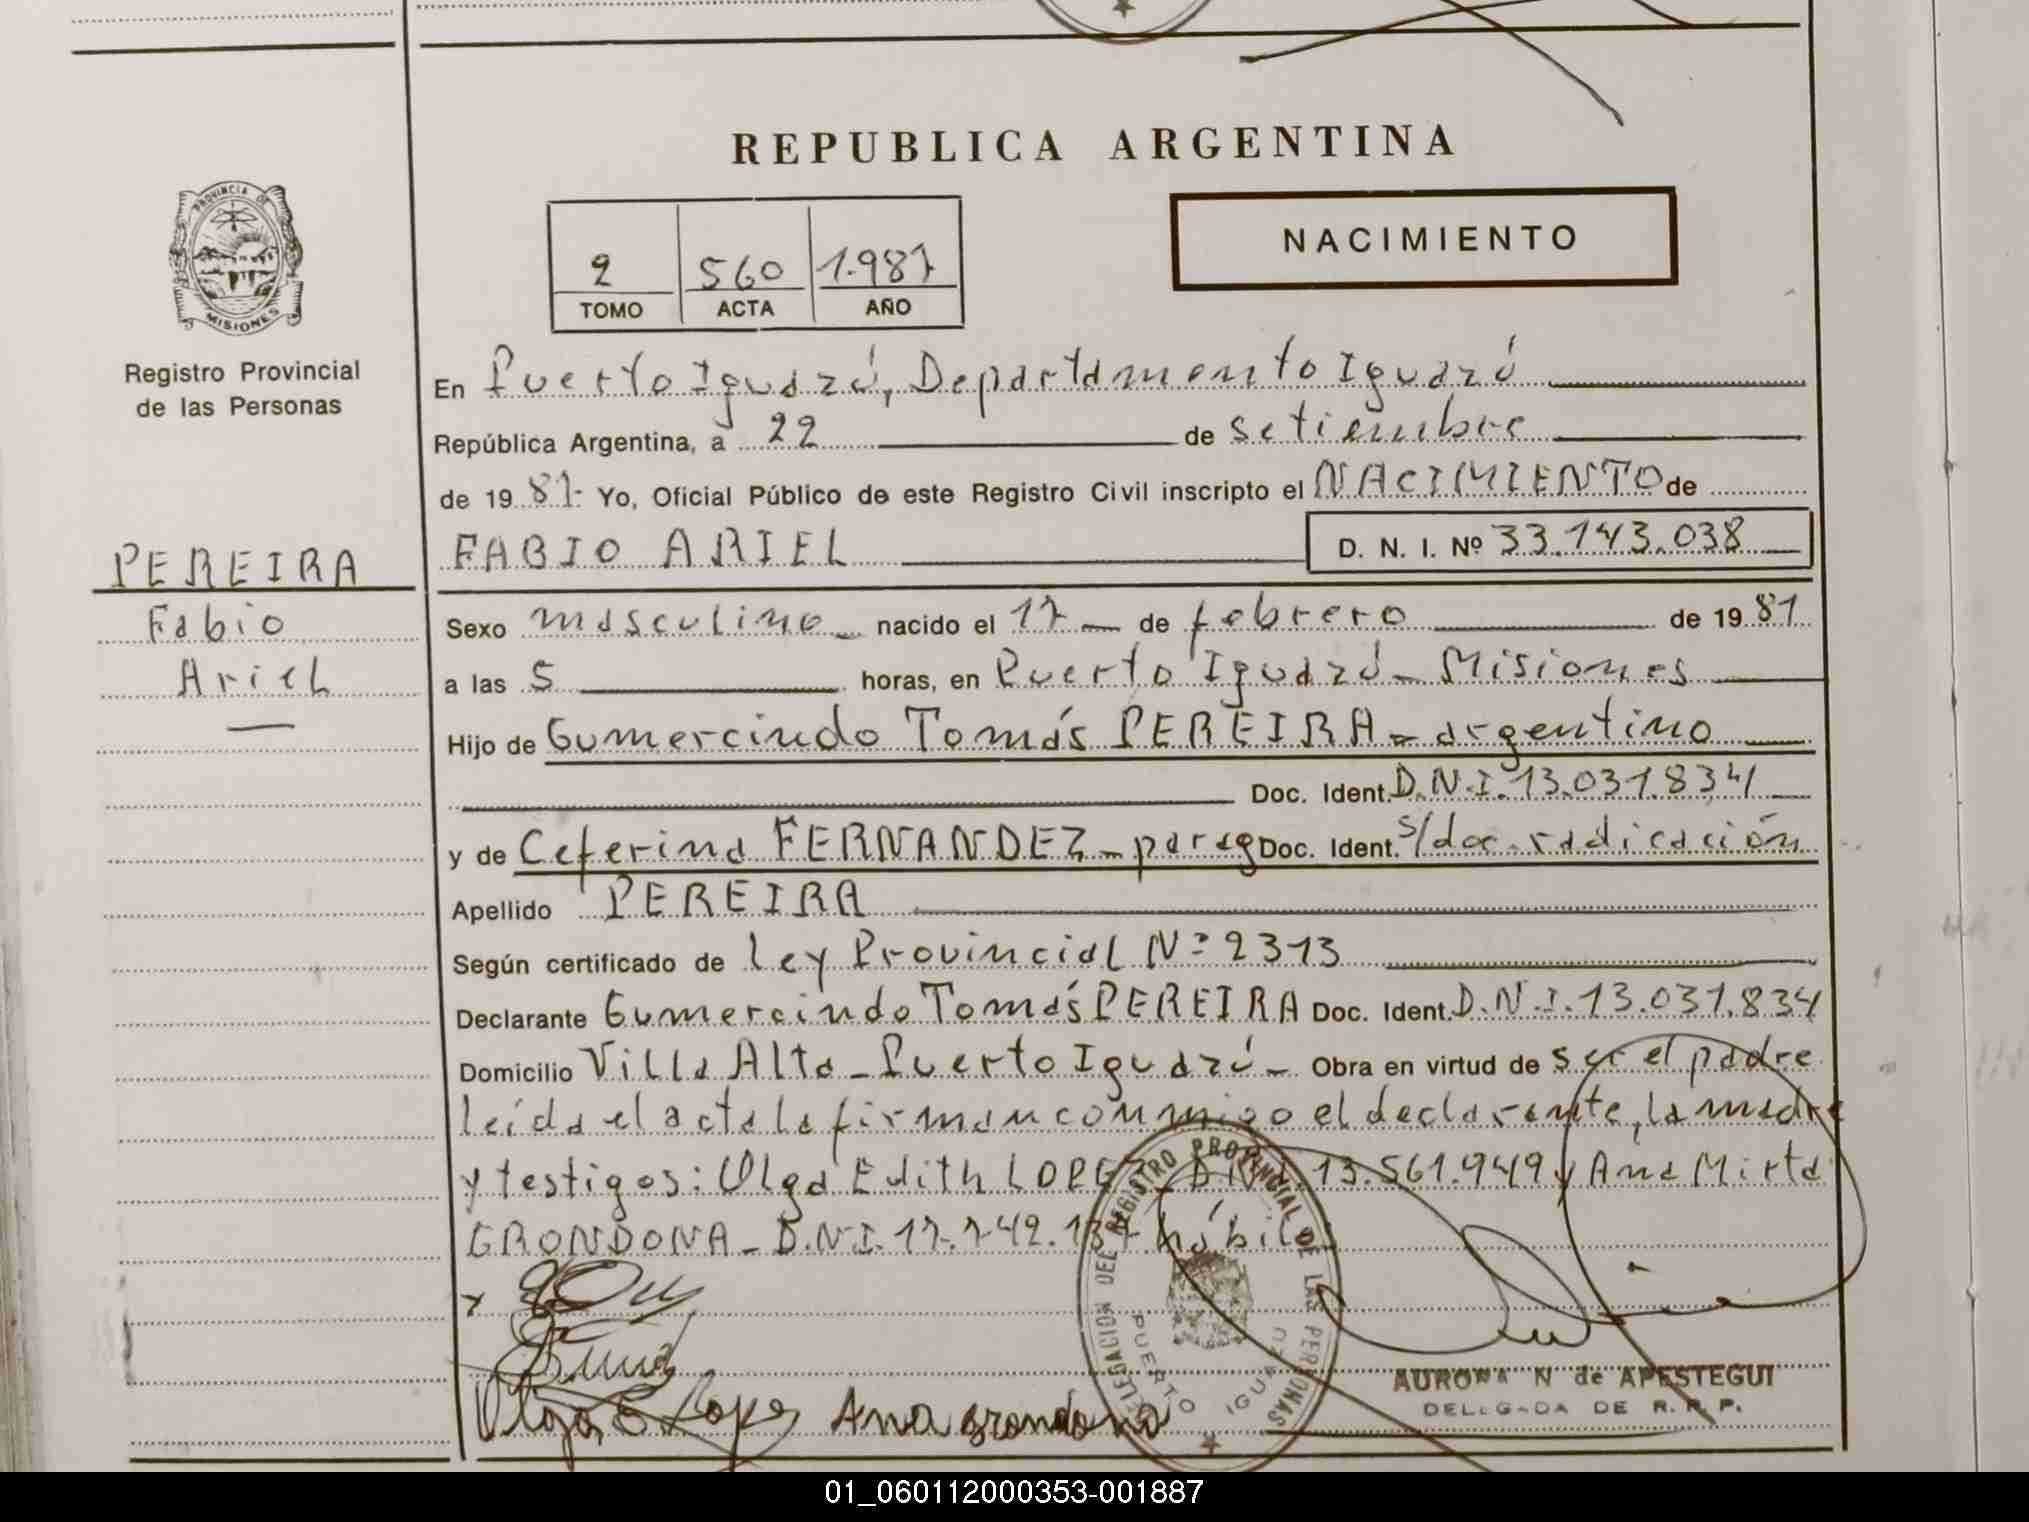 REPUBLICA ARGENTINA
PROVINCIA DE
MISIONES
NACIMIENTO
2 560 1.987
TOMO ACTA AÑO
Registro Provincial
de las Personas
PEREIRA
Fabio
Ariel
En Puerto Iguazú, Departamento Iguazú
República Argentina, a 22 de setiembre
de 19 87- Yo, Oficial Público de este Registro Civil inscripto el NACIMIENTO de
FABIO ARIEL D. N. I. Nº 33.143.038
Sexo masculino nacido el 17 de febrero de 19 87
a las 5 horas, en Puerto Iguazú - Misiones
Hijo de Gumercindo Tomás PEREIRA - argentino
Doc. Ident. D.N.I. 13.031.834
y de Ceferina FERNANDEZ - parag Doc. Ident. s/doc. radicación
Apellido PEREIRA
Según certificado de Ley Provincial Nº 2313
Declarante Gumercindo Tomás PEREIRA Doc. Ident. D.N.I. 13.031.834
Domicilio Villa Alta - Puerto Iguazú - Obra en virtud de ser el padre
leída el acta la firman conmigo el declarante, la madre
y testigos: Olga Edith LOPEZ - D.N.I. 13.561.949 y Ana Mirta
GRONDONA - D.N.I. 17.742.137 hábiles
Olga E Lopez Ana Grondona
DELEGACION DEL REGISTRO PROVINCIAL DE LAS PERSONAS
PUERTO IGUAZU
AURORA N de APESTEGUI
DELEGADA DE R. P. P.
01_060112000353-001887